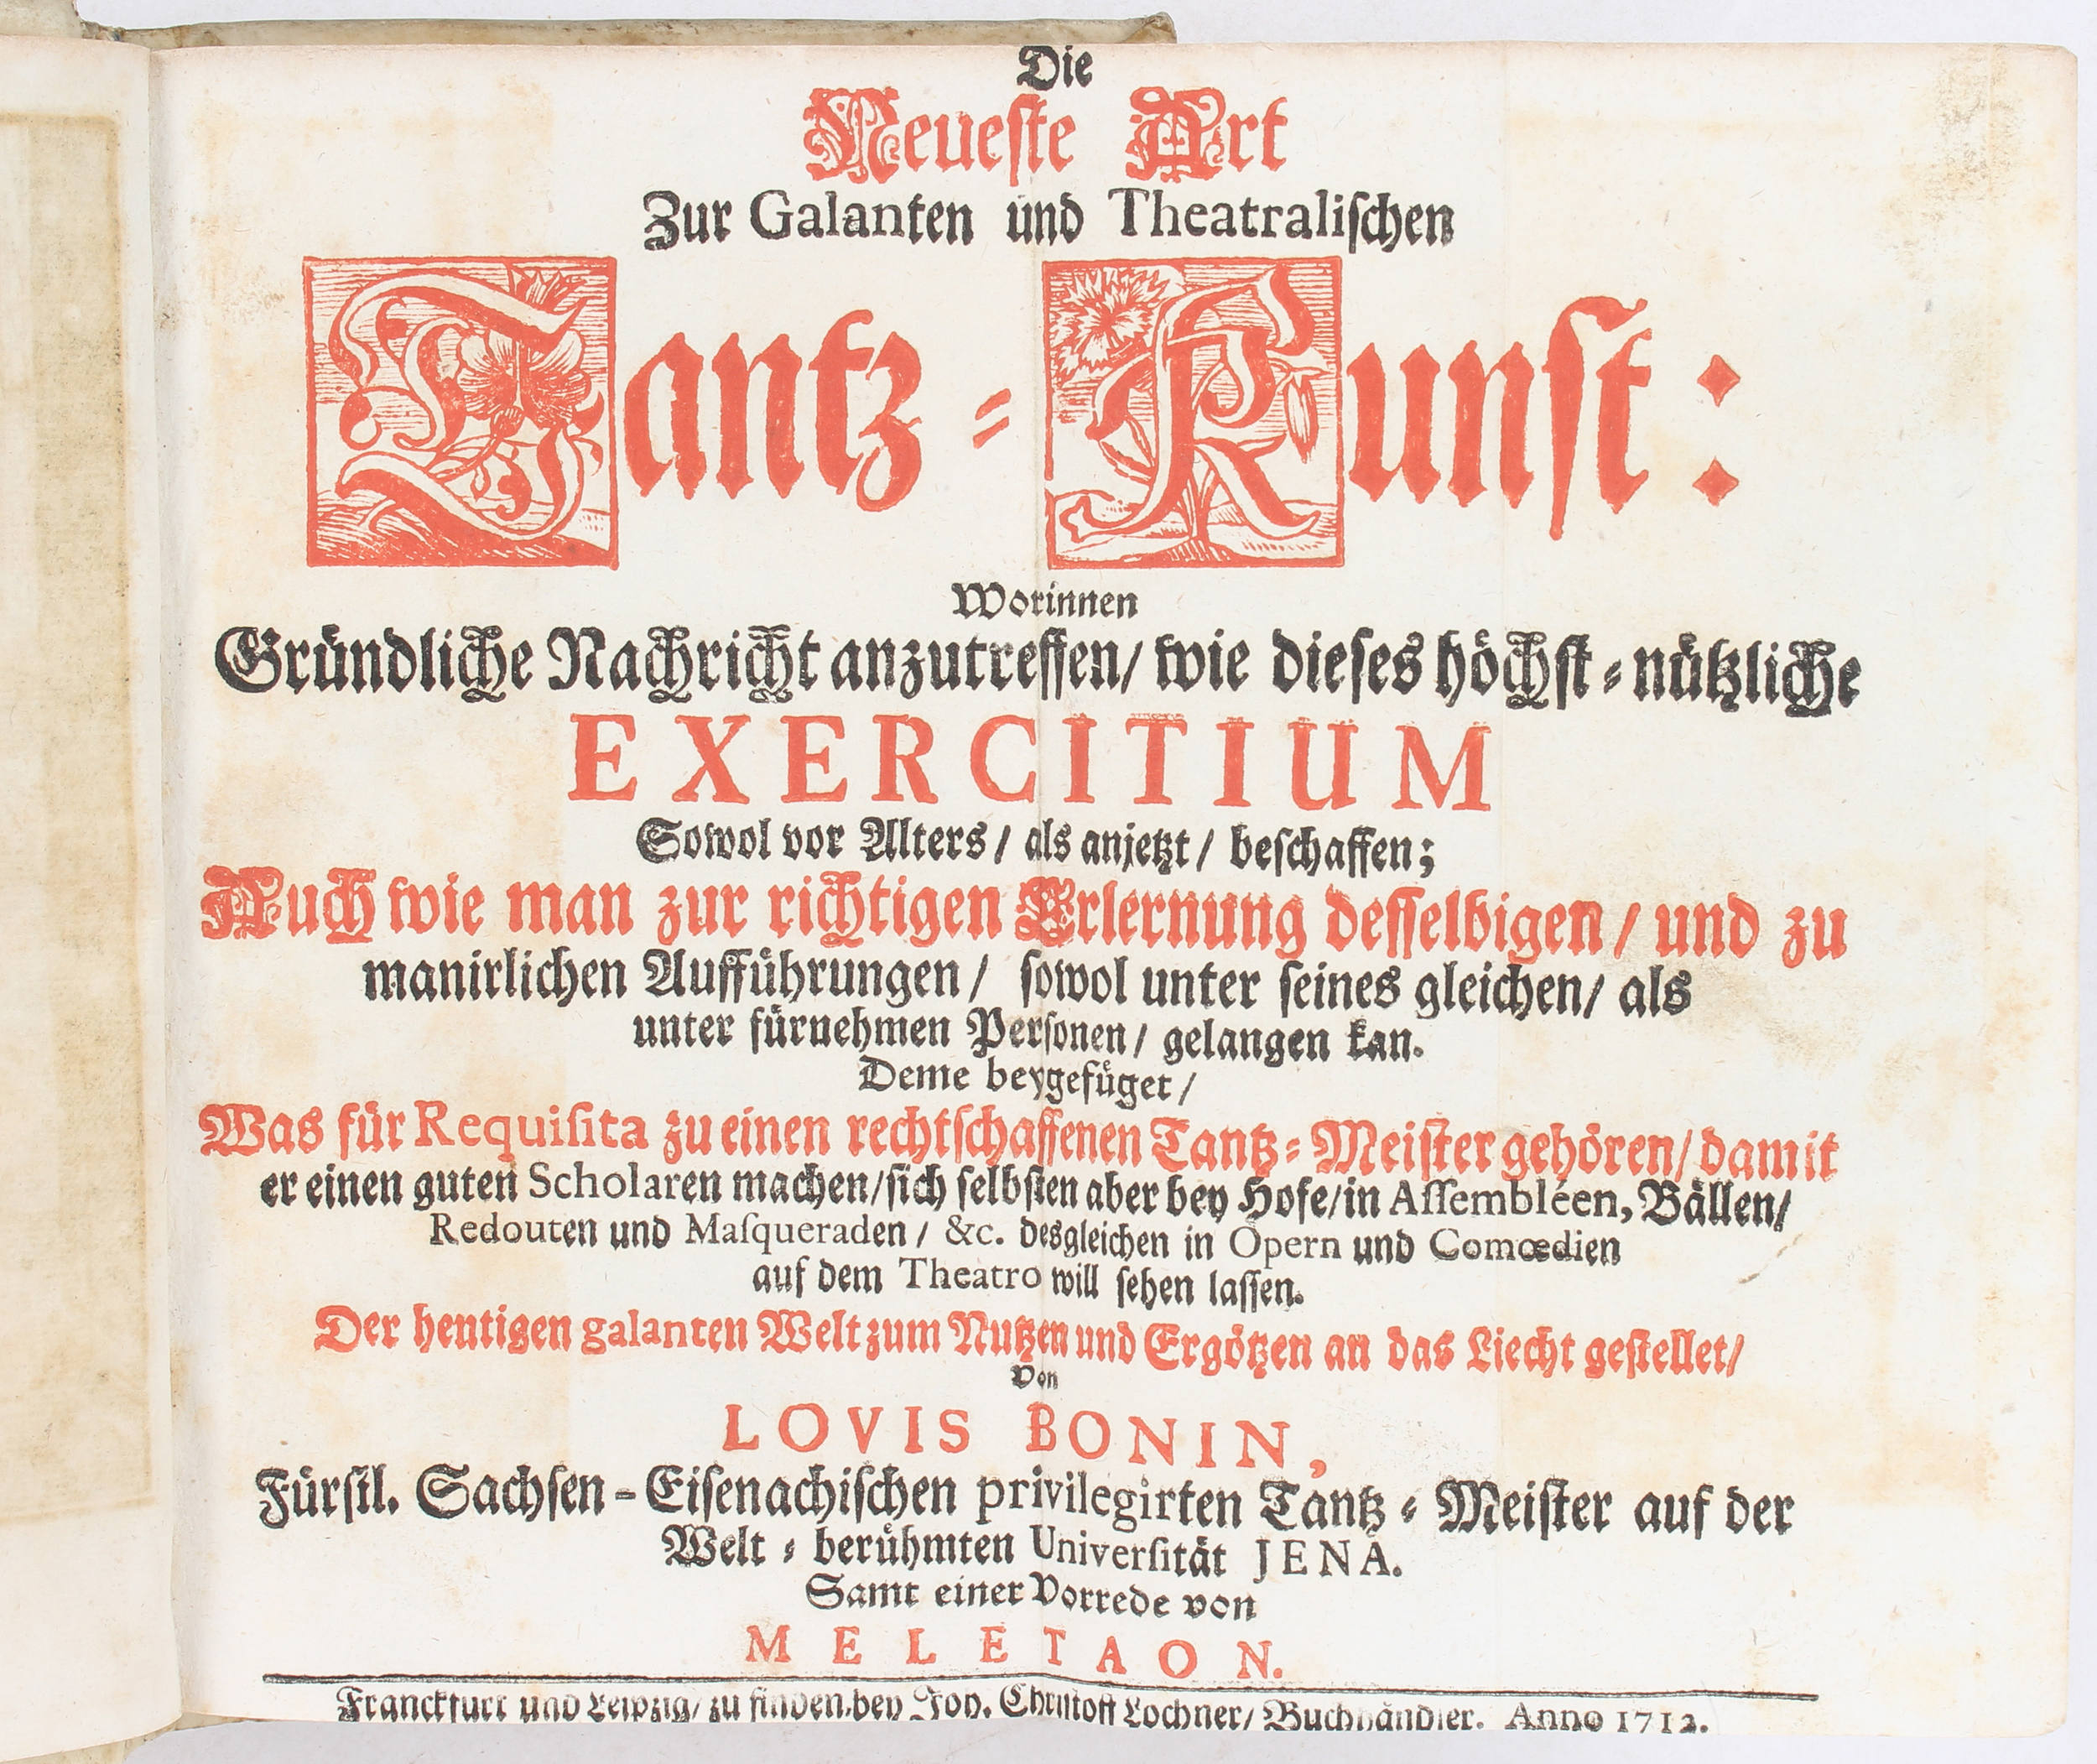 Die
Neueste Art
Zur Galanten und Theatralischen
Tantz-Kunst:
Worinnen
Gründliche Nachricht anzutreffen/ wie dieses höchst-nützliche
EXERCITIUM
Sowol vor Alters/ als anjetzt/ beschaffen;
Auch wie man zur richtigen Erlernung desselbigen/ und zu
manirlichen Aufführungen/ sowol unter seines gleichen/ als
unter fürnehmen Personen/ gelangen kan.
Deme beygefüget/
Was für Requisita zu einen rechtschaffenen Tantz-Meister gehören/ damit
er einen guten Scholaren machen/ sich selbsten aber bey Hofe/ in Assembléen, Bällen/
Redouten und Masqueraden/ &c. desgleichen in Opern und Comœdien
auf dem Theatro will sehen lassen.
Der heutigen galanten Welt zum Nutzen und Ergötzen an das Liecht gestellet/
Von
LOVIS BONIN,
Fürstl. Sachsen-Eisenachischen privilegirten Tantz-Meister auf der
Welt-berühmten Universität JENA.
Samt einer Vorrede von
MELETAON.
Franckfurt und Leipzig/ zu finden bey Joh. Christoff Lochner/ Buchhändler. Anno 1712.